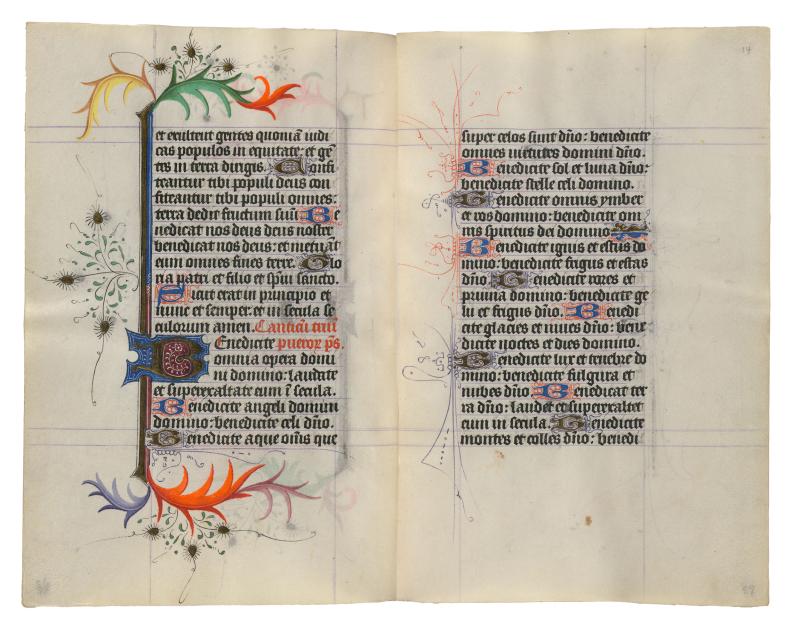 et exultent gentes quoniā iudi
cas populos in equitate: et gē
tes in terra dirigis. Confi
teantur tibi populi deus con
fiteantur tibi populi omnes:
terra dedit fructum suū. Be
nedicat nos deus deus noster
benedicat nos deus: et metuāt
eum omnes fines terre. Glo
ria patri et filio et spūi sancto.
Sicut erat in principio et
nunc et semper: et in secula se
culorum amen. Canticū triū
Enedicte pueroꝝ ps.
B omnia opera domi
ni domino: laudate
et superexaltate eum ī secula.
Benedicite angeli domini
domino: benedicite celi dño.
Benedicite aque om̄s que
14
super celos sunt dño: benedicite
omnes uirtutes domini dño.
Benedicite sol et luna dño:
benedicite stelle celi domino.
Benedicite omnis ymber
et ros domino: benedicite om
nis spiritus dei domino.
Benedicite ignis et estus do
mino: benedicite frigus et estas
dño. Benedicite rores et
pruina domino: benedicite ge
lu et frigus dño. Benedi
cite glacies et niues dño: bene
dicite noctes et dies domino.
Benedicite lux et tenebre do
mino: benedicite fulgura et
nubes dño. Benedicat ter
ra dño: laudet et superexaltet
eum in secula. Benedicite
montes et colles dño: benedi